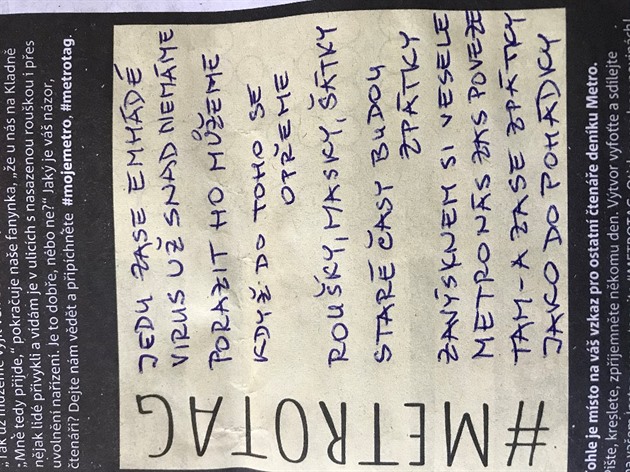 „Mně tedy přijde,“ pokračuje naše fanynka, „že u nás na Kladně
nějak lidé přivykli a vídám je v ulicích s nasazenou rouškou i přes
uvolnění nařízení. Je to dobře, nebo ne?“ Jaký je váš názor,
čtenáři? Dejte nám vědět a připíchněte #mojemetro, #metrotag.
JEDU ZASE EMHÁDÉ
VIRUS UŽ SNAD NEMÁME
PORAZIT HO MŮŽEME
KDYŽ DO TOHO SE
OPŘEME
ROUŠKY, MASKY, ŠÁTKY
STARÉ ČASY BUDOU
ZPÁTKY
ZAVÝSKNEM SI VESELE
METRO NÁS ZAS POVEZE
TAM - A ZASE ZPÁTKY
JAKO DO POHÁDKY
#METROTAG
ohle je místo na váš vzkaz pro ostatní čtenáře deníku Metro.
ište, kreslete, zpříjemněte někomu den. Výtvor vyfoťte a sdílejte